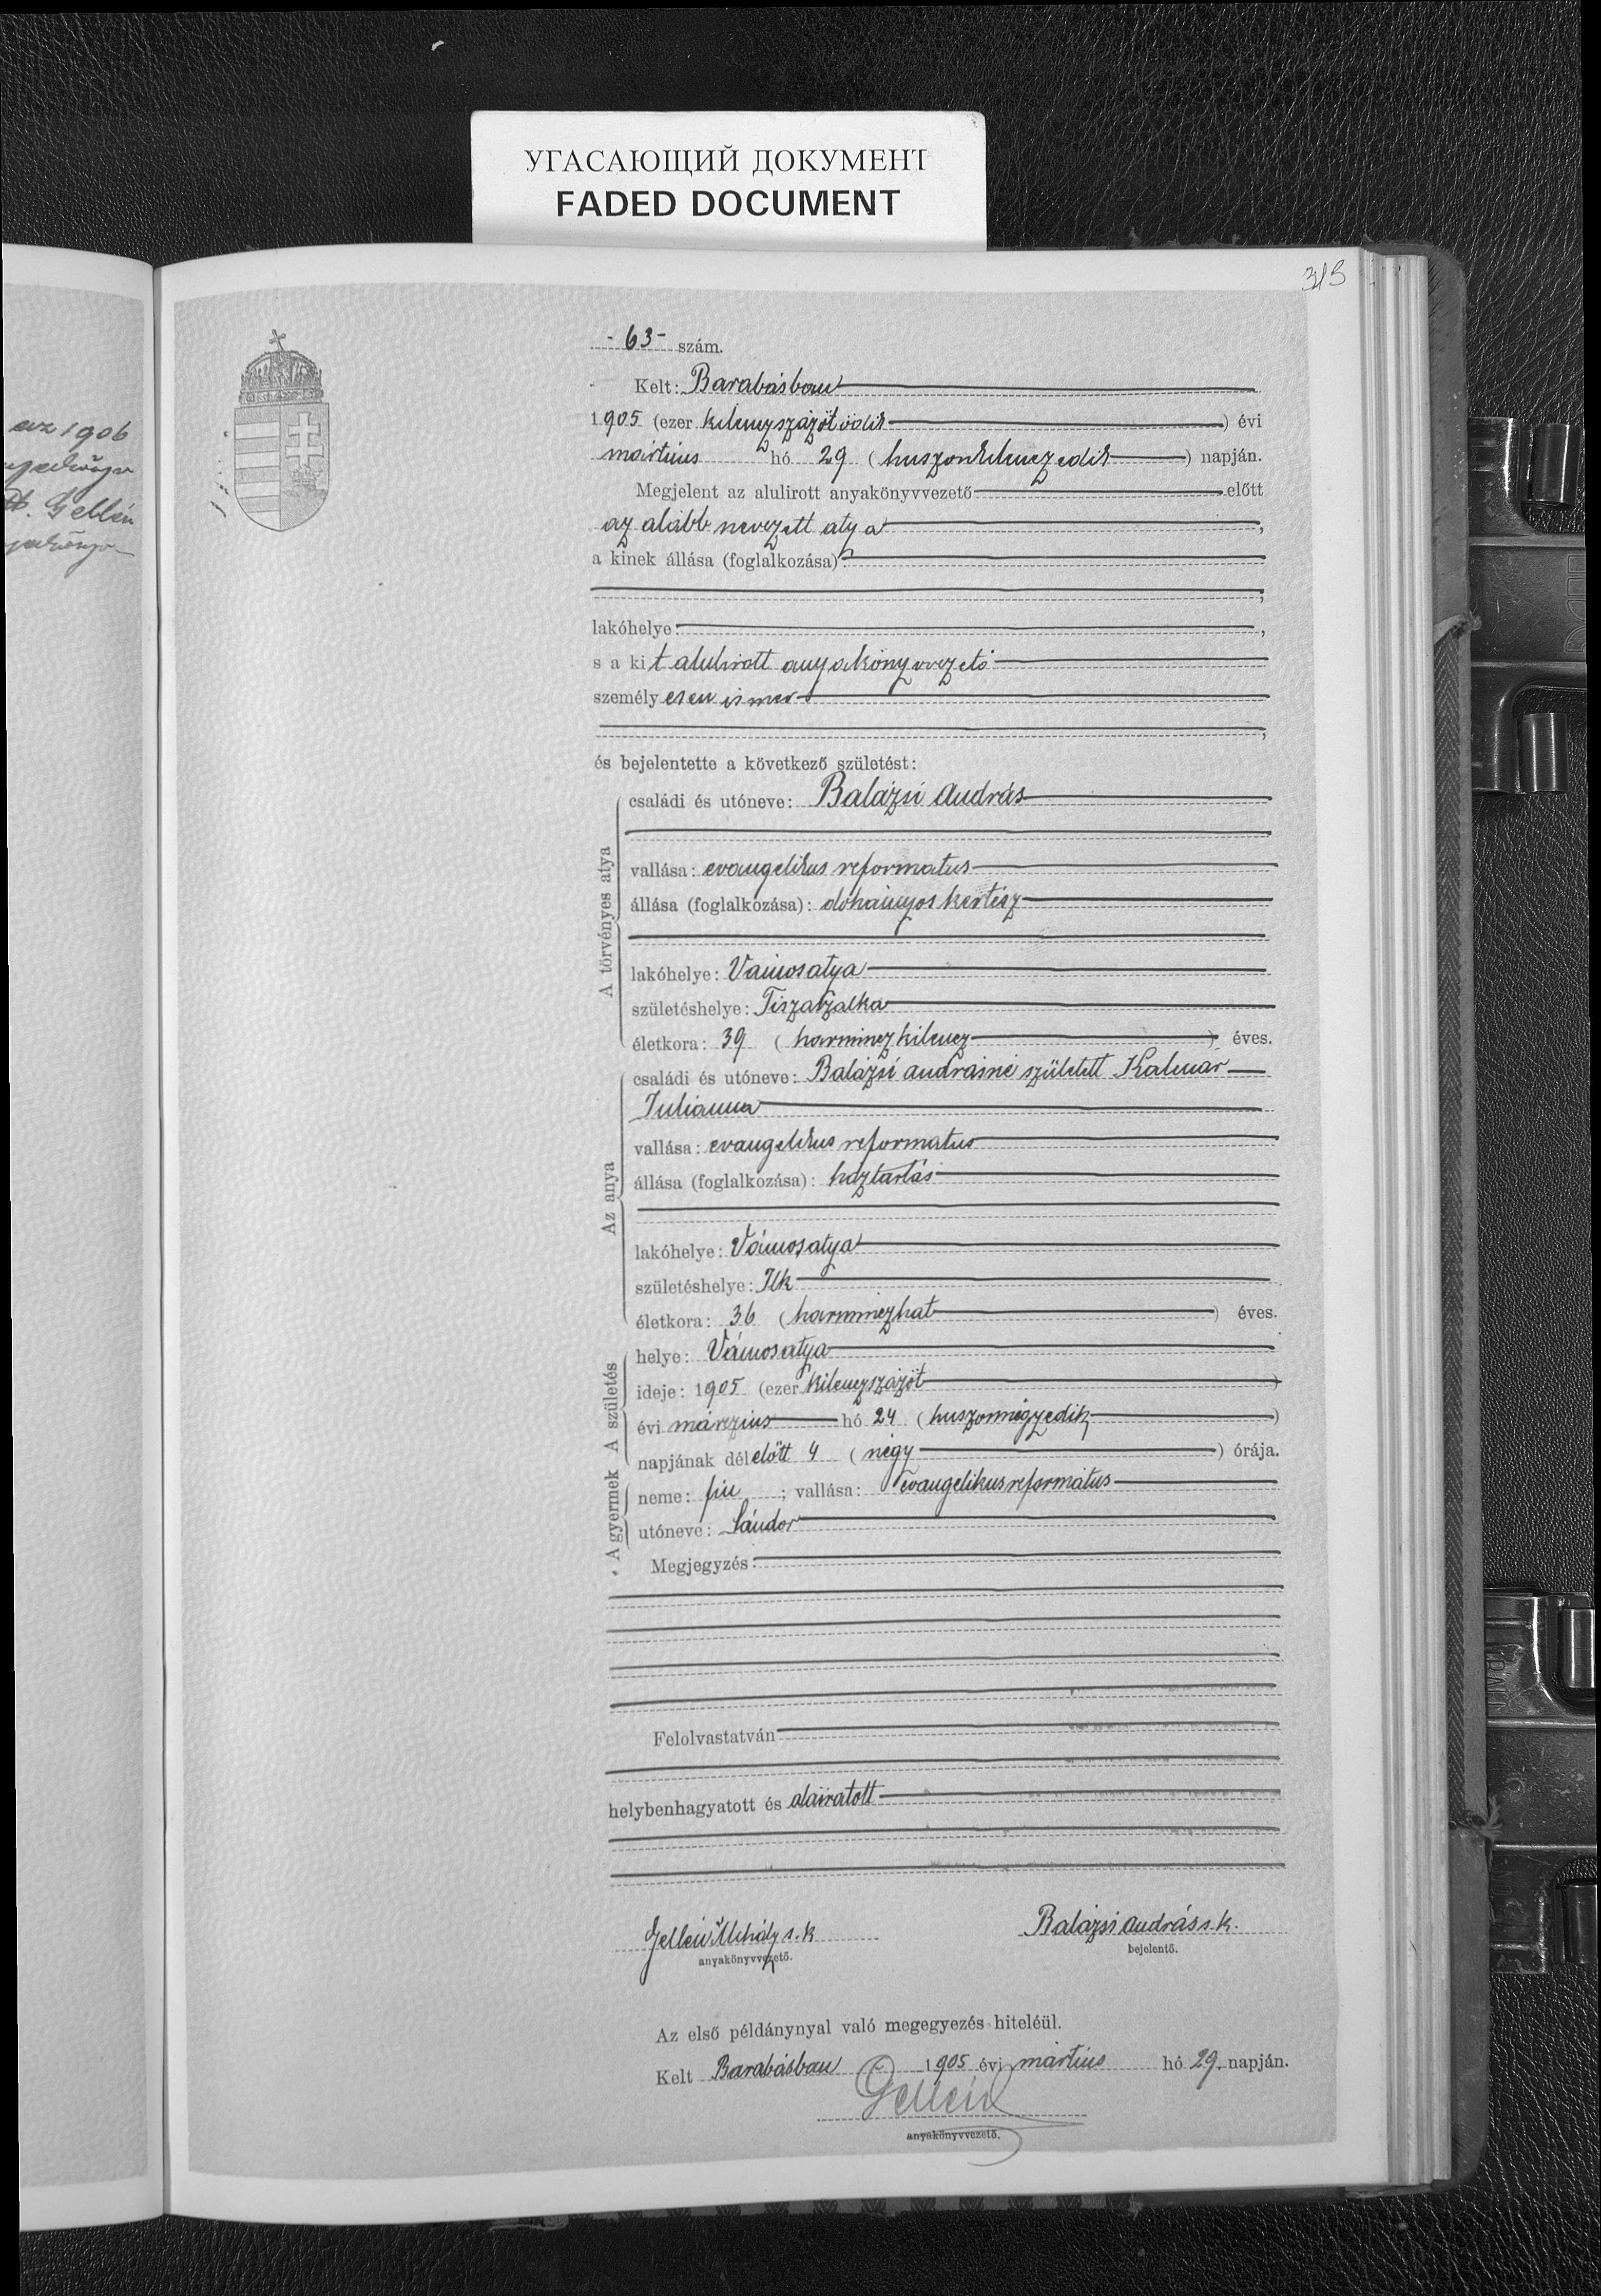 УГАСАЮЩИЙ ДОКУМЕНТ
FADED DOCUMENT
313
az 1906
Gellén
- 63 - szám.
Kelt: Barabásban
1905 (ezer kilenczszázötödik) évi
mártius hó 29 (huszonkilenczedik) napján.
Megjelent az alulirott anyakönyvvezető előtt
az alább nevezett atya,
a kinek állása (foglalkozása):
;
lakóhelye:,
s a kit alulirott anyakönyvvezető
személyesen ismer
,
és bejelentette a következő születést:
A törvényes atya
családi és utóneve: Balázsi András
vallása: evangelikus reformatus
állása (foglalkozása): dohányos kertész
lakóhelye: Vámosatya
születéshelye: Tiszaszalka
életkora: 39 (harminczkilencz) éves.
Az anya
családi és utóneve: Balázsi Andrásné született Kalmár
Julianna
vallása: evangelikus reformatus
állása (foglalkozása): háztartás
lakóhelye: Vámosatya
születéshelye: Ilk
életkora: 36 (harminczhat) éves.
A születés
helye: Vámosatya
ideje: 1905 (ezer kilenczszázöt)
évi márczius hó 24 (huszonnégyedik)
napjának délelőtt 4 (négy) órája.
A gyermek
neme: fiu; vallása: evangelikus református
utóneve: Sándor
Megjegyzés:
Felolvastatván
helybenhagyatott és aláiratott
Gellén Mihály s.k Balázsi András s.k.
anyakönyvvezető. bejelentő.
Az első példánynyal való megegyezés hiteléül.
Kelt Barabásban 1905 évi mártius hó 29. napján.
Gellén
anyakönyvvezető.